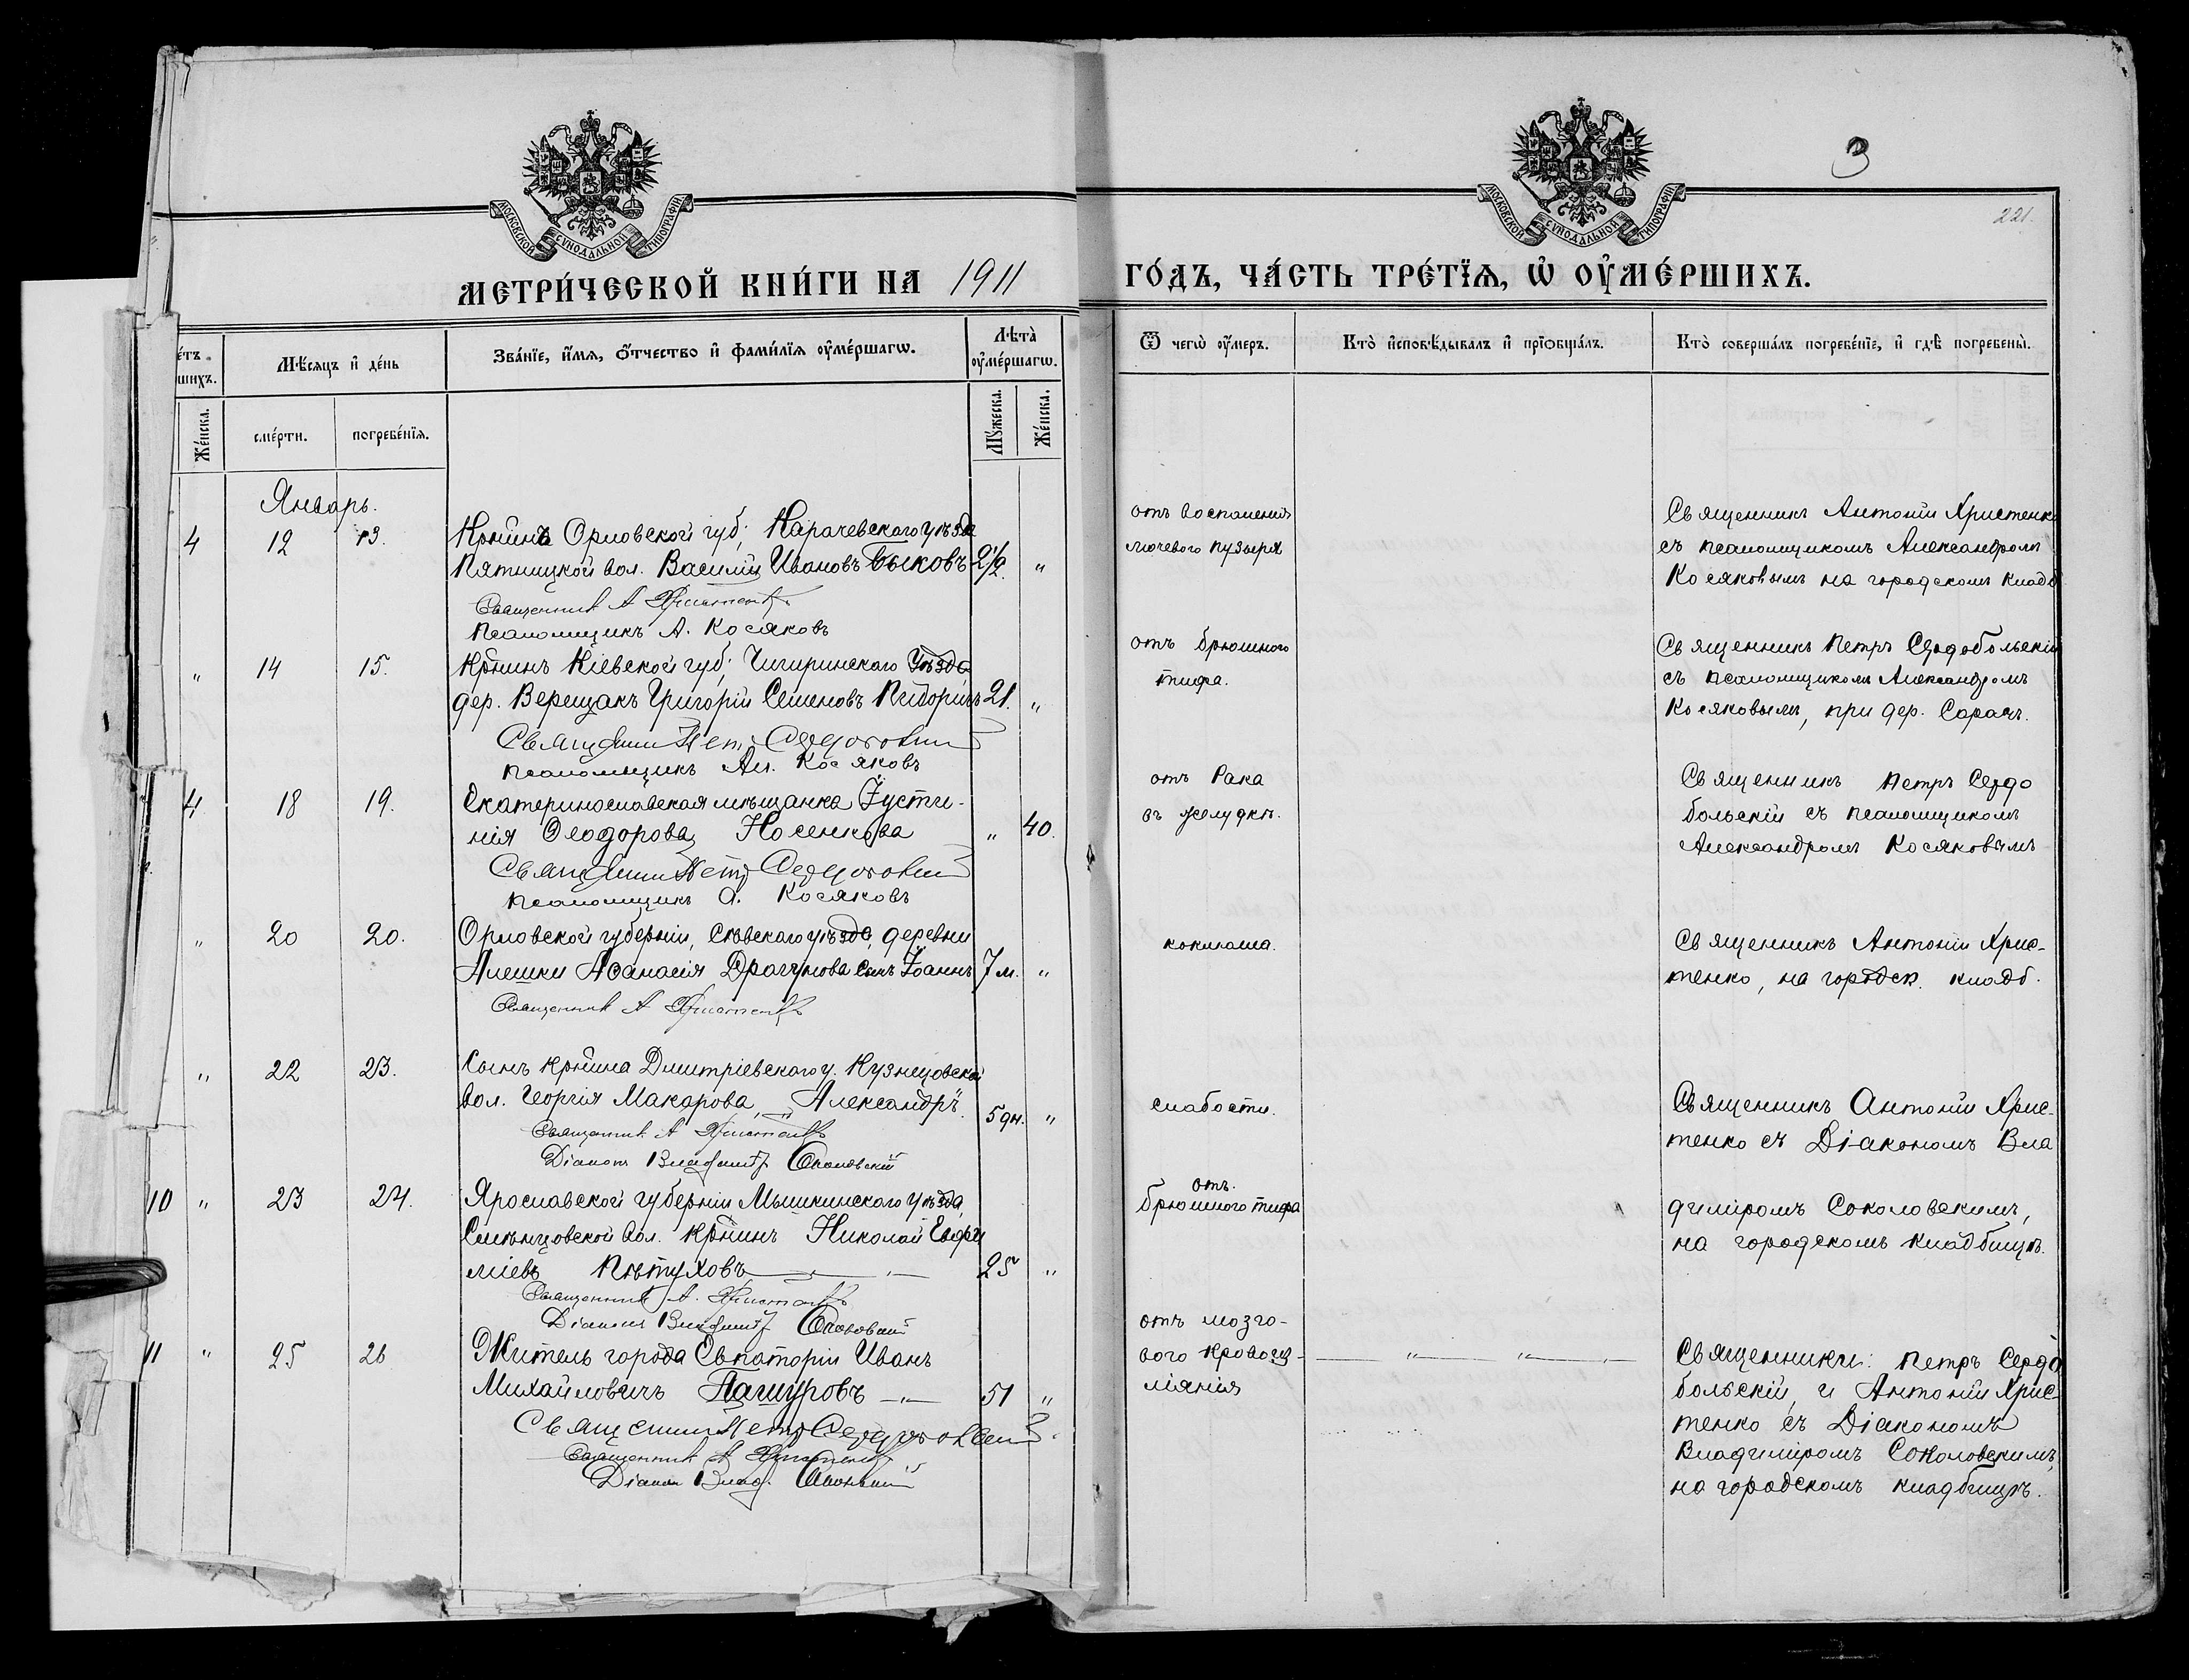 МОСКОВСКОЙ СѴНОДАЛЬНОЙ ТИПОГРАФІИ
МОСКОВСКОЙ СѴНОДАЛЬНОЙ ТИПОГРАФІИ
3
221.
МЕТРИ́ЧЕСКОЙ КНИ́ГИ НА 1911 ГО́ДЪ, ЧА́СТЬ ТРЕ́ТЇѦ, Ѡ҆ ОУ҆МЕ́РШИХЪ.
е́тъ
шихъ.
Мѣ́сяцъ и҆ де́нь
Зва́нїе, и҆́мѧ, ѻ҆́тчество и҆ фами́лїѧ оу҆ме́ршагѡ.
Лѣ̀та̀ оу҆ме́ршагѡ.
Ѿ чегѡ̀ оу҆́меръ.
Кто̀ и҆сповѣ́дывалъ и҆ прїѡбща́лъ.
Кто̀ соверша́лъ погребе́нїе, и҆ гдѣ̀ погребены̀.
Же́нска.
сме́рти.
погребе́нїѧ.
Мꙋ́жеска.
Же́нска.
Январь.
4 12 13. Крнинъ Орловской губ; Карачевскаго уѣзда
Пятницкой вол. Василій Ивановъ Быковъ 2½ "
Священник А Христенко
Псаломщикъ А. Косяковъ
отъ воспаленія
мочевого пузыря
Священникъ Антоній Христенко
съ псаломщикомъ Александромъ
Косяковымъ на городскомъ кладб
" 14 15. Крнинъ Кіевской губ; Чигиринскаго Уѣзда
дер. Верещакъ Григорій Семеновъ 21. "
Священник Петр Сердобольский
Псаломщикъ Ал. Косяковъ
отъ брюшного
тифа.
Священникъ Петръ Сердобольскій
съ псаломщикомъ Александромъ
Косяковымъ, при дер. Сарач.
4 18 19. Екатеринославская мѣщанка Іусти-
нія Ѳеодорова Носенкова " 40.
Священник Петр Сердобольский
Псаломщикъ А. Косяковъ
отъ Рака
въ желудкѣ.
Священникъ Петръ Сердо
больскій съ псаломщикомъ
Александромъ Косяковымъ
" 20 20. Орловской губерніи, Сѣвскаго уѣзда, деревни
Алешки Аѳанасія Драгунова сынъ Іоаннъ 7 м. "
Священник А Христенко
коклюша.
Священникъ Антоній Хрис-
тенко, на городск. кладб.
" 22 23. Сынъ крнина Дмитріевскаго у. Кузнецовской
вол. Георгія Макарова, "Александръ". 5 дн. "
Священник А Христенко
Діаконъ Владимір Соколовскій
слабости.
Священникъ Антоній Хрис-
тенко съ Діакономъ Вла
10 " 23 24. Ярославской губерніи Мышкинскаго уѣзда,
вол. крнинъ Николай Евфи
міевъ Пѣтуховъ — " — 25 "
Священник А. Христенко
Діаконъ Владимір Соколовскій
отъ
брюшного тифа
диміромъ Соколовскимъ,
на городскомъ кладбищѣ.
11 " 25 26 Житель города Евпаторіи Иванъ
Михайловичъ Пашуровъ —"— 51 "
Священник Петр Сердобольский
Священник А Христенко
Діакон Влад. Соколовскій
отъ мозго-
вого кровоиз-
ліянія
— " — " —
Священники: Петръ Сердо
больскій, и Антоній Хрис-
тенко съ Діакономъ
Владиміромъ Соколовскимъ,
на городскомъ кладбищѣ.